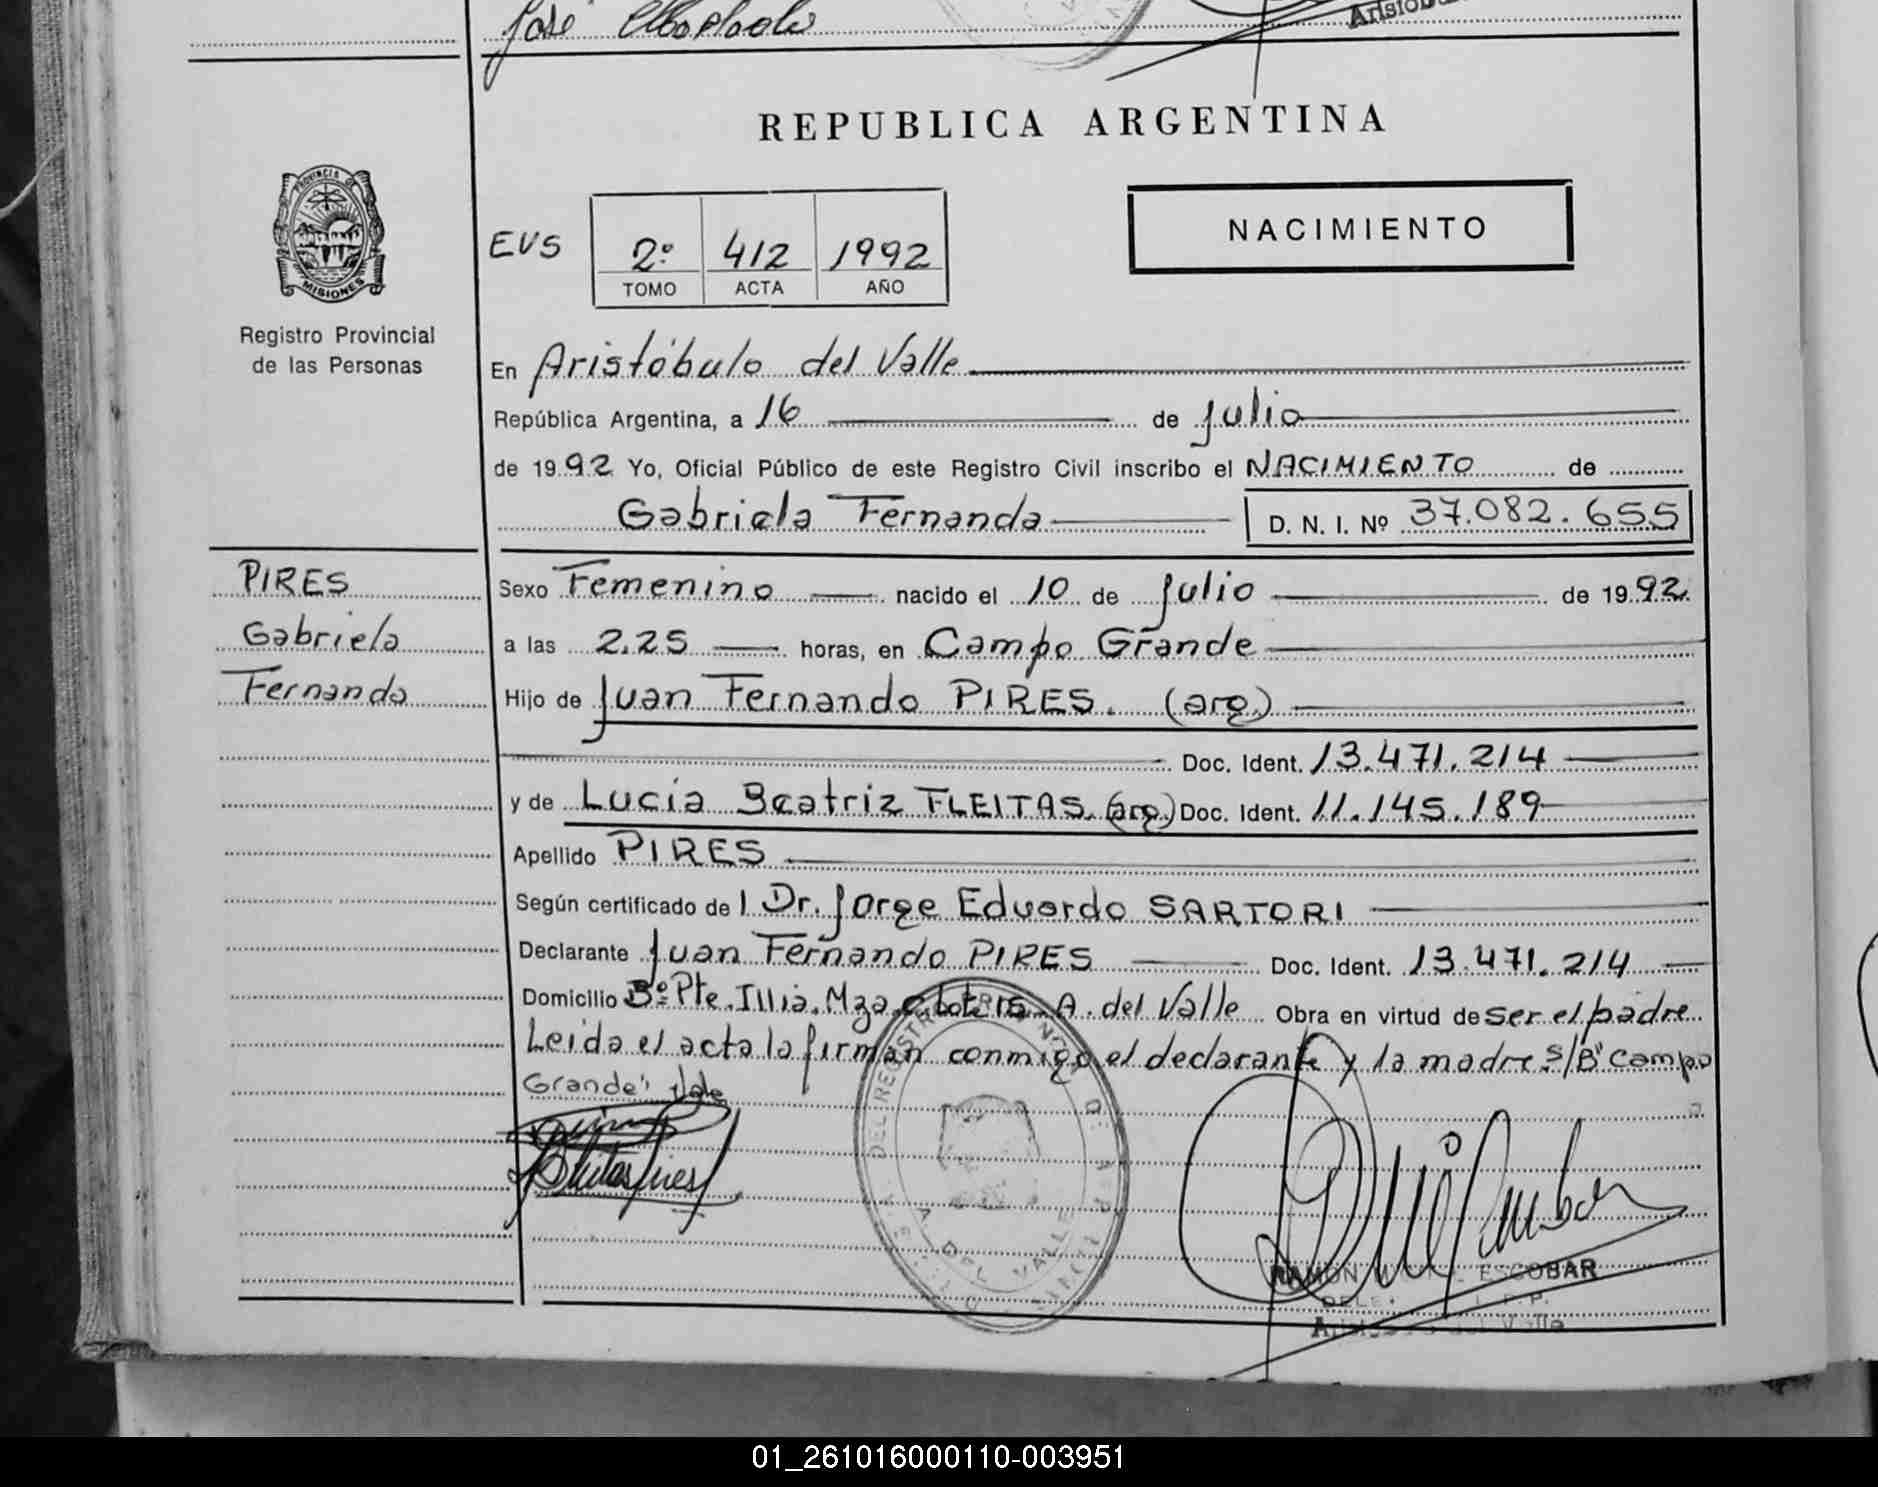 José
Aristób
REPUBLICA ARGENTINA
PROVINCIA DE
MISIONES
Registro Provincial
de las Personas
NACIMIENTO
EVS
2º 412 1992
TOMO ACTA AÑO
En Aristóbulo del Valle
República Argentina, a 16 de Julio
de 1992 Yo, Oficial Público de este Registro Civil inscribo el NACIMIENTO de
Gabriela Fernanda D. N. I. Nº 37.082.655
PIRES
Gabriela
Fernanda
Sexo Femenino nacido el 10 de Julio de 1992
a las 2.25 horas, en Campo Grande
Hijo de Juan Fernando PIRES. (arg.)
Doc. Ident. 13.471.214
y de Lucía Beatriz FLEITAS. (arg.) Doc. Ident. 11.145.189
Apellido PIRES
Según certificado de l Dr. Jorge Eduardo SARTORI
Declarante Juan Fernando PIRES Doc. Ident. 13.471.214
Domicilio Bº Pte. Illia. Mza. Lote 15. A. del Valle Obra en virtud de ser el padre
Leida el acta la firman conmigo el declarante y la madre. S/B" Campo
Grande" Vale
A. DEL VALLE
RAMON ESCOBAR
Aristóbulo del Valle
01_261016000110-003951